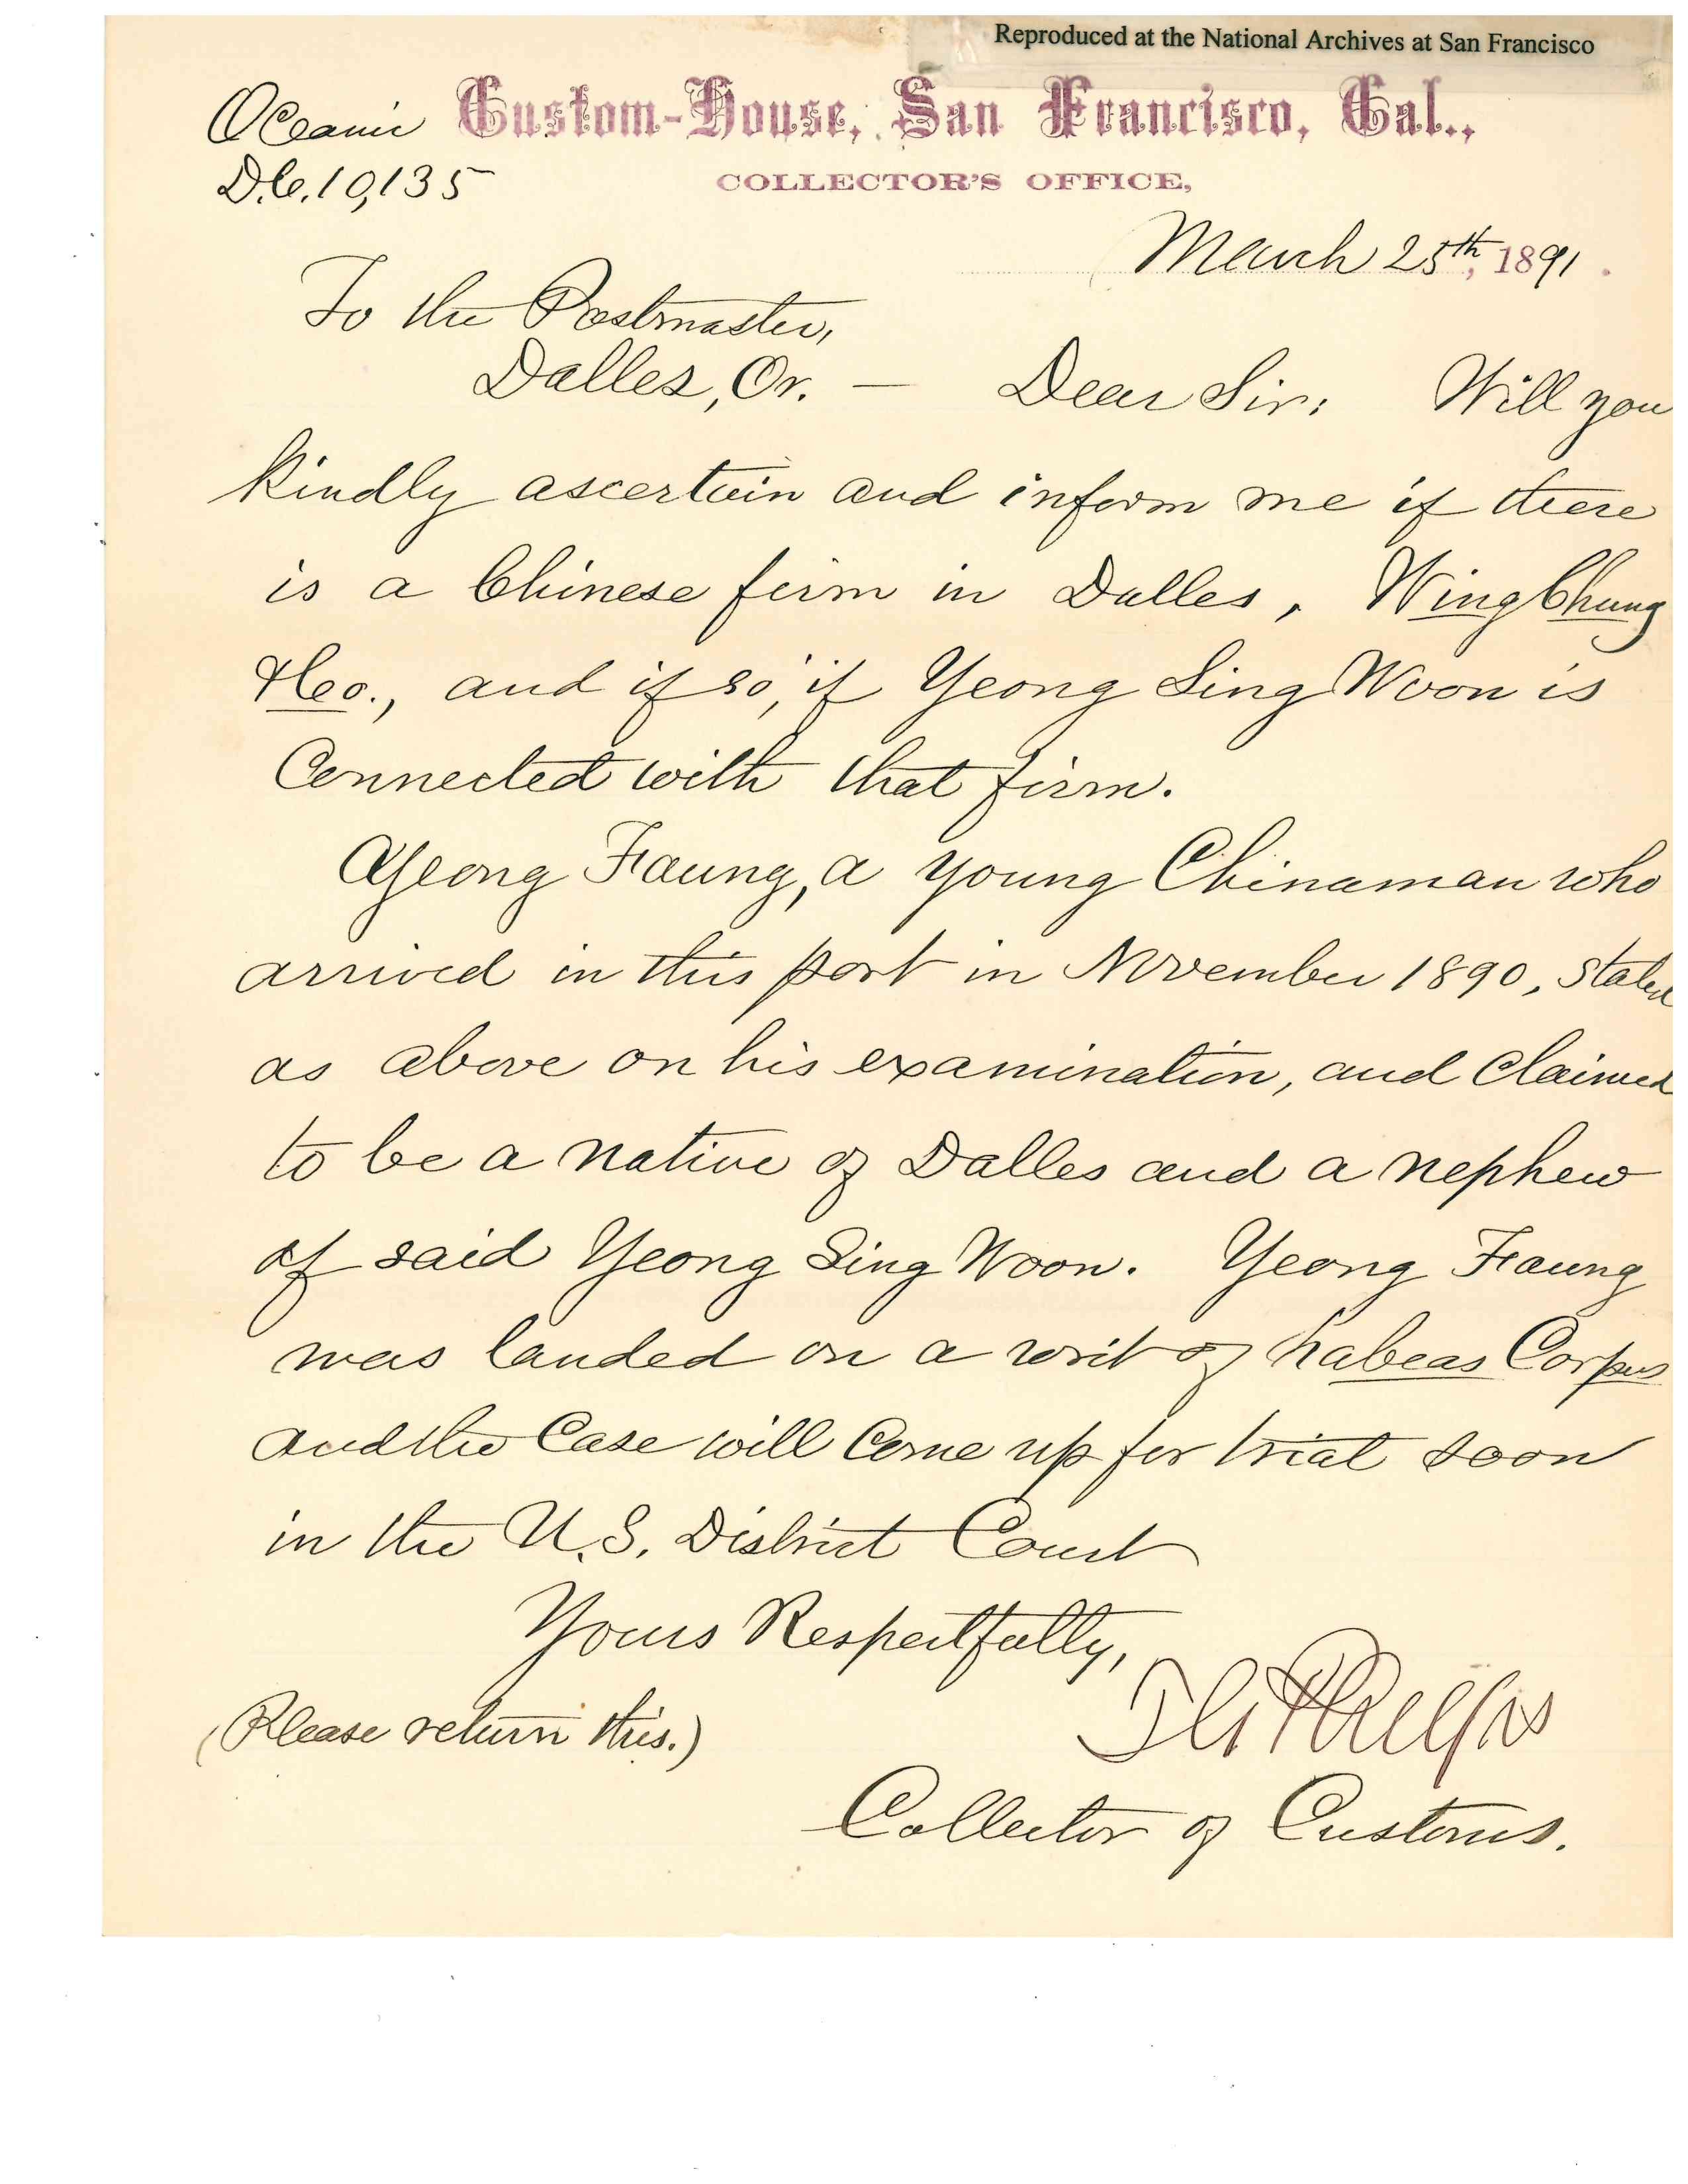 Reproduced at the National Archives at San Francisco
Oceanic Custom-House, San Francisco, Cal.,
D.C. 10,135 COLLECTOR'S OFFICE,
March 25th, 1891.
To the Postmaster,
Dalles, Or. — Dear Sir: Will you
kindly ascertain and inform me if there
is a Chinese firm in Dalles, Wing Chung
& Co., and if so, if Yeong Sing Woon is
Connected with that firm.
Yeong Faung, a young Chinaman who
arrived in this port in November 1890, stated
as above on his examination, and claimed
to be a native of Dalles and a nephew
of said Yeong Sing Woon. Yeong Faung
was landed on a writ of habeas Corpus
and the Case will Come up for trial soon
in the U.S. District Court
Yours Respectfully,
(Please return this.) Phelps
Collector of Customs.